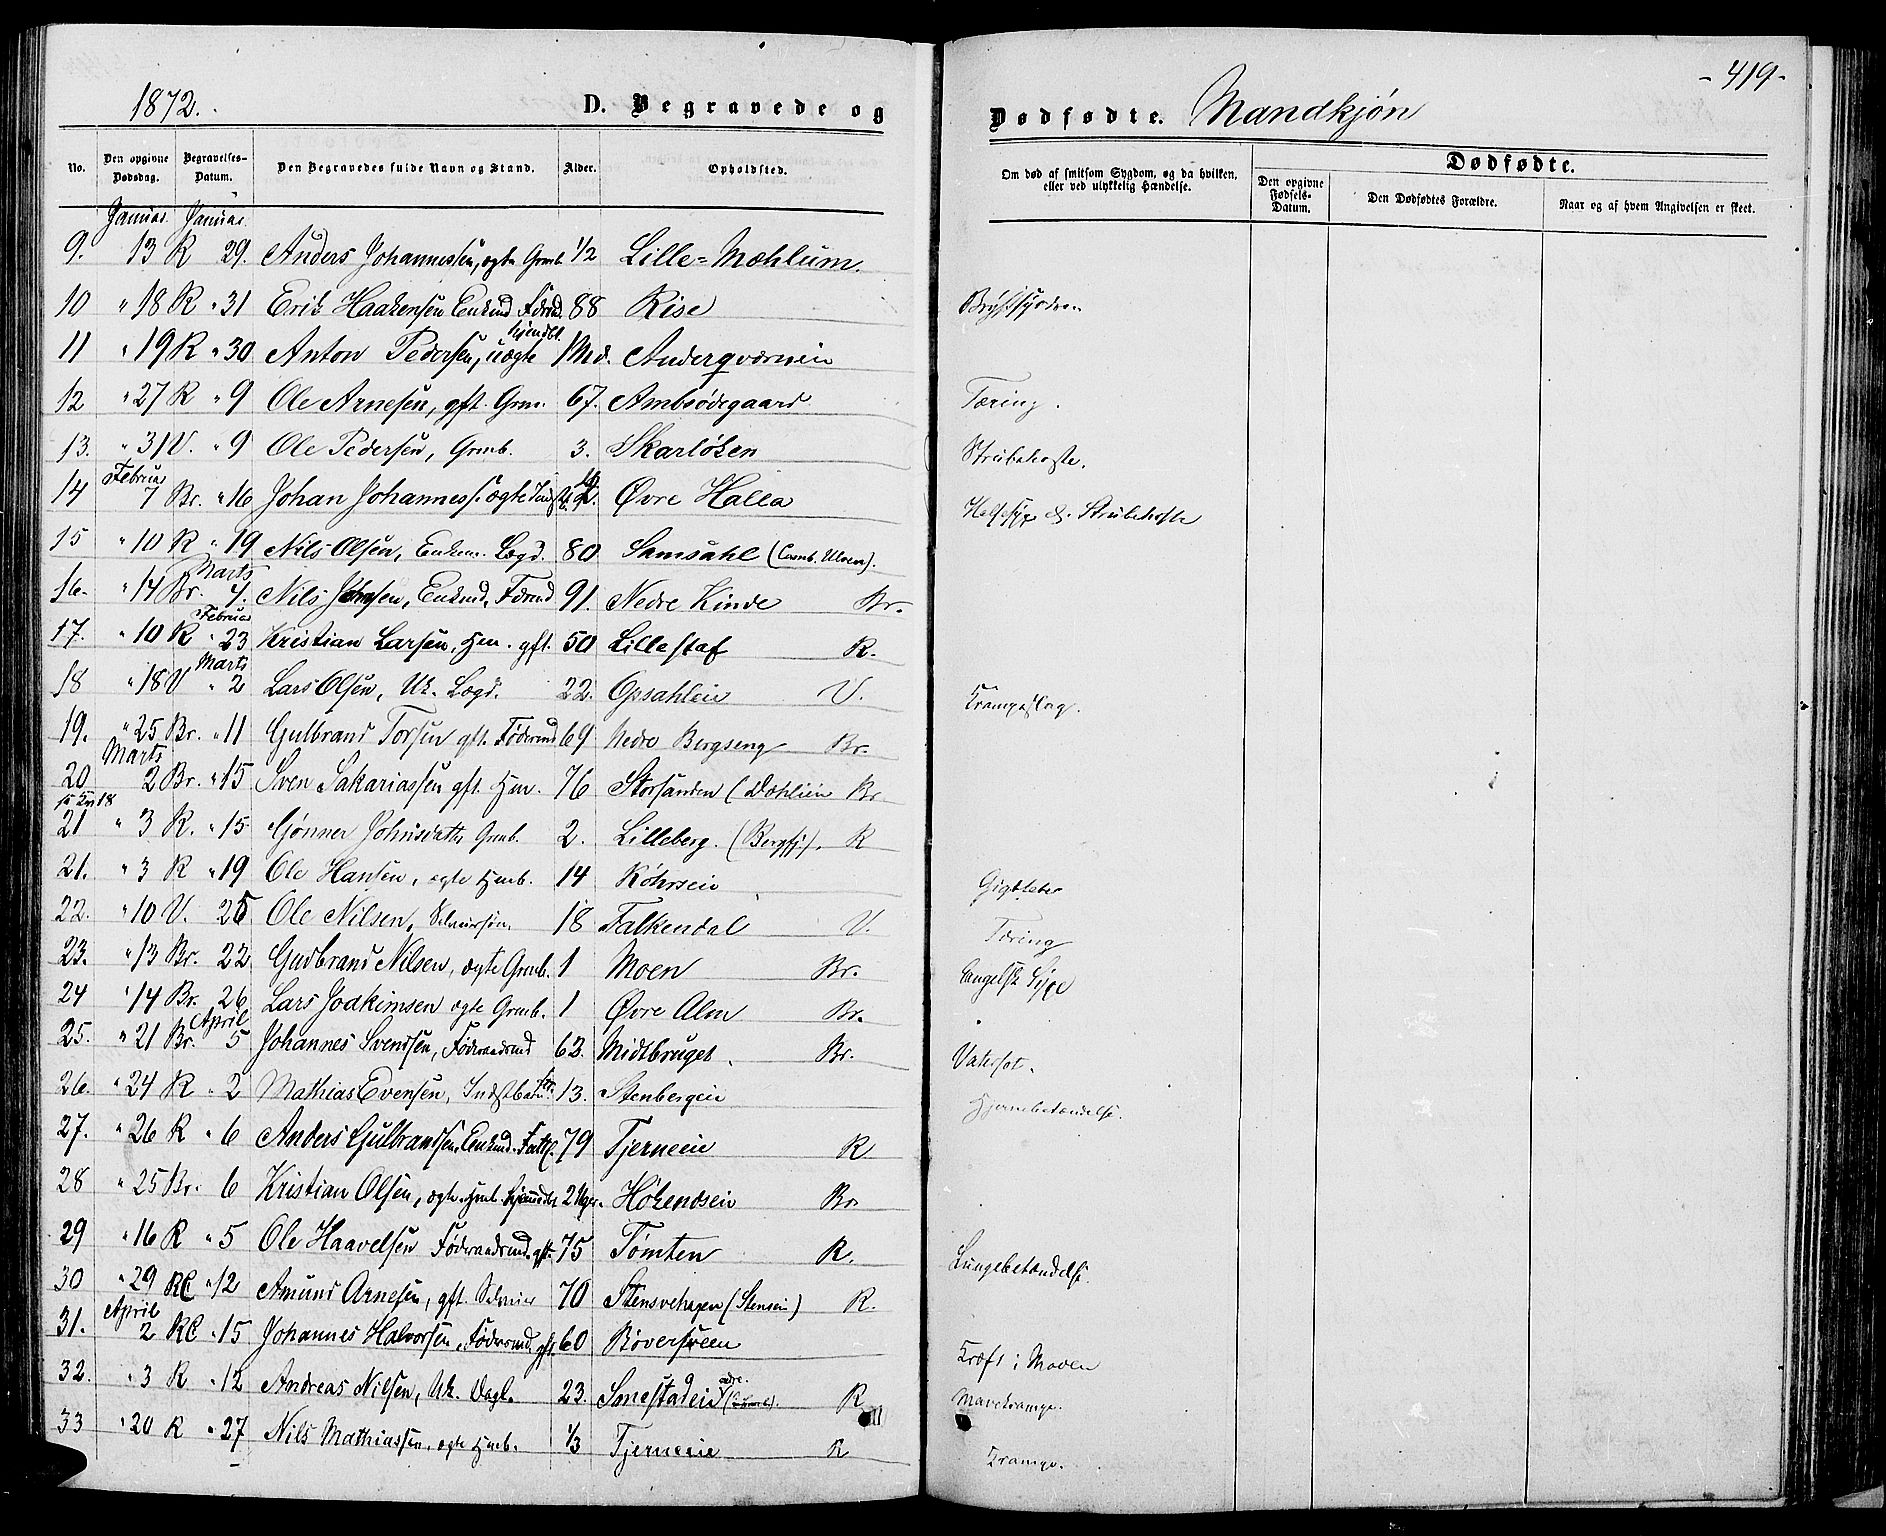 1872.
D. Begravede og
Dødfødte. Mandkjøn
- 419 -
No. Den opgivne Dødsdag. Begravelses-Datum. Den Begravedes fulde Navn og Stand. Alder. Opholdsted. Om død af smitsom Sygdom, og da hvilken, eller ved ulykkelig Hændelse.
Dødfødte.
Den opgivne Fødsels-Datum. Den Dødfødtes Forældre. Naar og af hvem Angivelsen er skeet.
Januar Januar
9. 13 R 29. Anders Johannessen, ægte Grmb. 1/2 Lille-Mæhlum.
10 " 18 R " 31 Erik Haakensen Enkmd Fdrd. 88 Rise Brystsygdom
11 " 19 R " 30 Anton Pedersen, uægte hjemdbt. 1 Md. Anderqværnein
12 " 27 R " 9 Ole Arnesen, gft. Grm. 67. Ambsødegaard Tæring.
13. " 31 V. " 9 Ole Pedersen, Grmb. 3. Skarløken Strubehoste.
Februar
14 7 Br. " 16 Johan Johanness. ægte Øvre Halla Halssyge & Strubehoste
15 " 10 R " 19 Nils Olsen, Enkem. Lægd. 80 Samsahl
Marts
16. " 14 Br. 4. Nils Johnsen, Enkmd. Fdrmd 91. Nedre Kinde Br.
Februar
17. " 10 R " 23 Kristian Larsen, Hm. gft. 50 Lillestaf R.
Marts
18 " 18 V " 2 Lars Olsen, Uk. Lægd. 22. Opsahlein V. Krampeslag.
19. " 25 Br. " 11 Gulbrand Torsen gft. Fødermd 69 Nedre Bergseng Br.
Marts
20 2 Br. " 15 Sven Sakariassen gft. Hm. 76 Storsanden (Dæhlien Br.
se Kvi 18
21 " 3 R. " 15 Gønner Johnsdatter Grmb. 2. Lilleberg. R
21. " 3 R " 19 Ole Hansen, ægte Hmb. 14 Røhrseie Gigtfeber
22. " 10 V. 25 Ole Nilsen, Selveiersøn. 18 Falkendal V. Tæring
23. " 13 Br. 22 Gudbrand Nilsen, ægte Grmb. 1 Moen Br. Engelsk Syge
24 " 14 Br. 26 Lars Joakimsen ægte Grmb. 1 Øvre Alm Br. "
April
25. " 21 Br. 5 Johannes Svendsen, Føderaadsmd 62. Midtbruget. Br. Vatersot.
26. " 24 R " 2 Mathias Evensen, Indstbarn. 13. Stenbergeie Hjernebetændelse.
27. " 26 R " 6 Anders Gulbrandsen, Enkmd. Fattl. 79 Tjerneeie R
28 " 25 Br. 6 Kristian Olsen, ægte Hmb. Hjemdbt 2 Uger. Hökendseie Br
29 " 16 R " 5 Ole Haavelsen Føderaadsmd. gft. 75 Tømten R. Lungebetændelse.
30 " 29 R " 12 Amund Arnesen, gft. Selveier 70 Stensvehagen (Stensein) R.
April
31. 2 R " 15 Johannes Halvorsen, Fødermd. gft. 60 Röversveen Kræft i Maven
32. " 3 R " 12 Andreas Nilsen, Uk. Dagl. 23. Smestadeie R Mavekrampe.
33 " 20 R " 27 Nils Mathiassen, ægte Hmb. 1/3 Tjerneeie R Krampe.